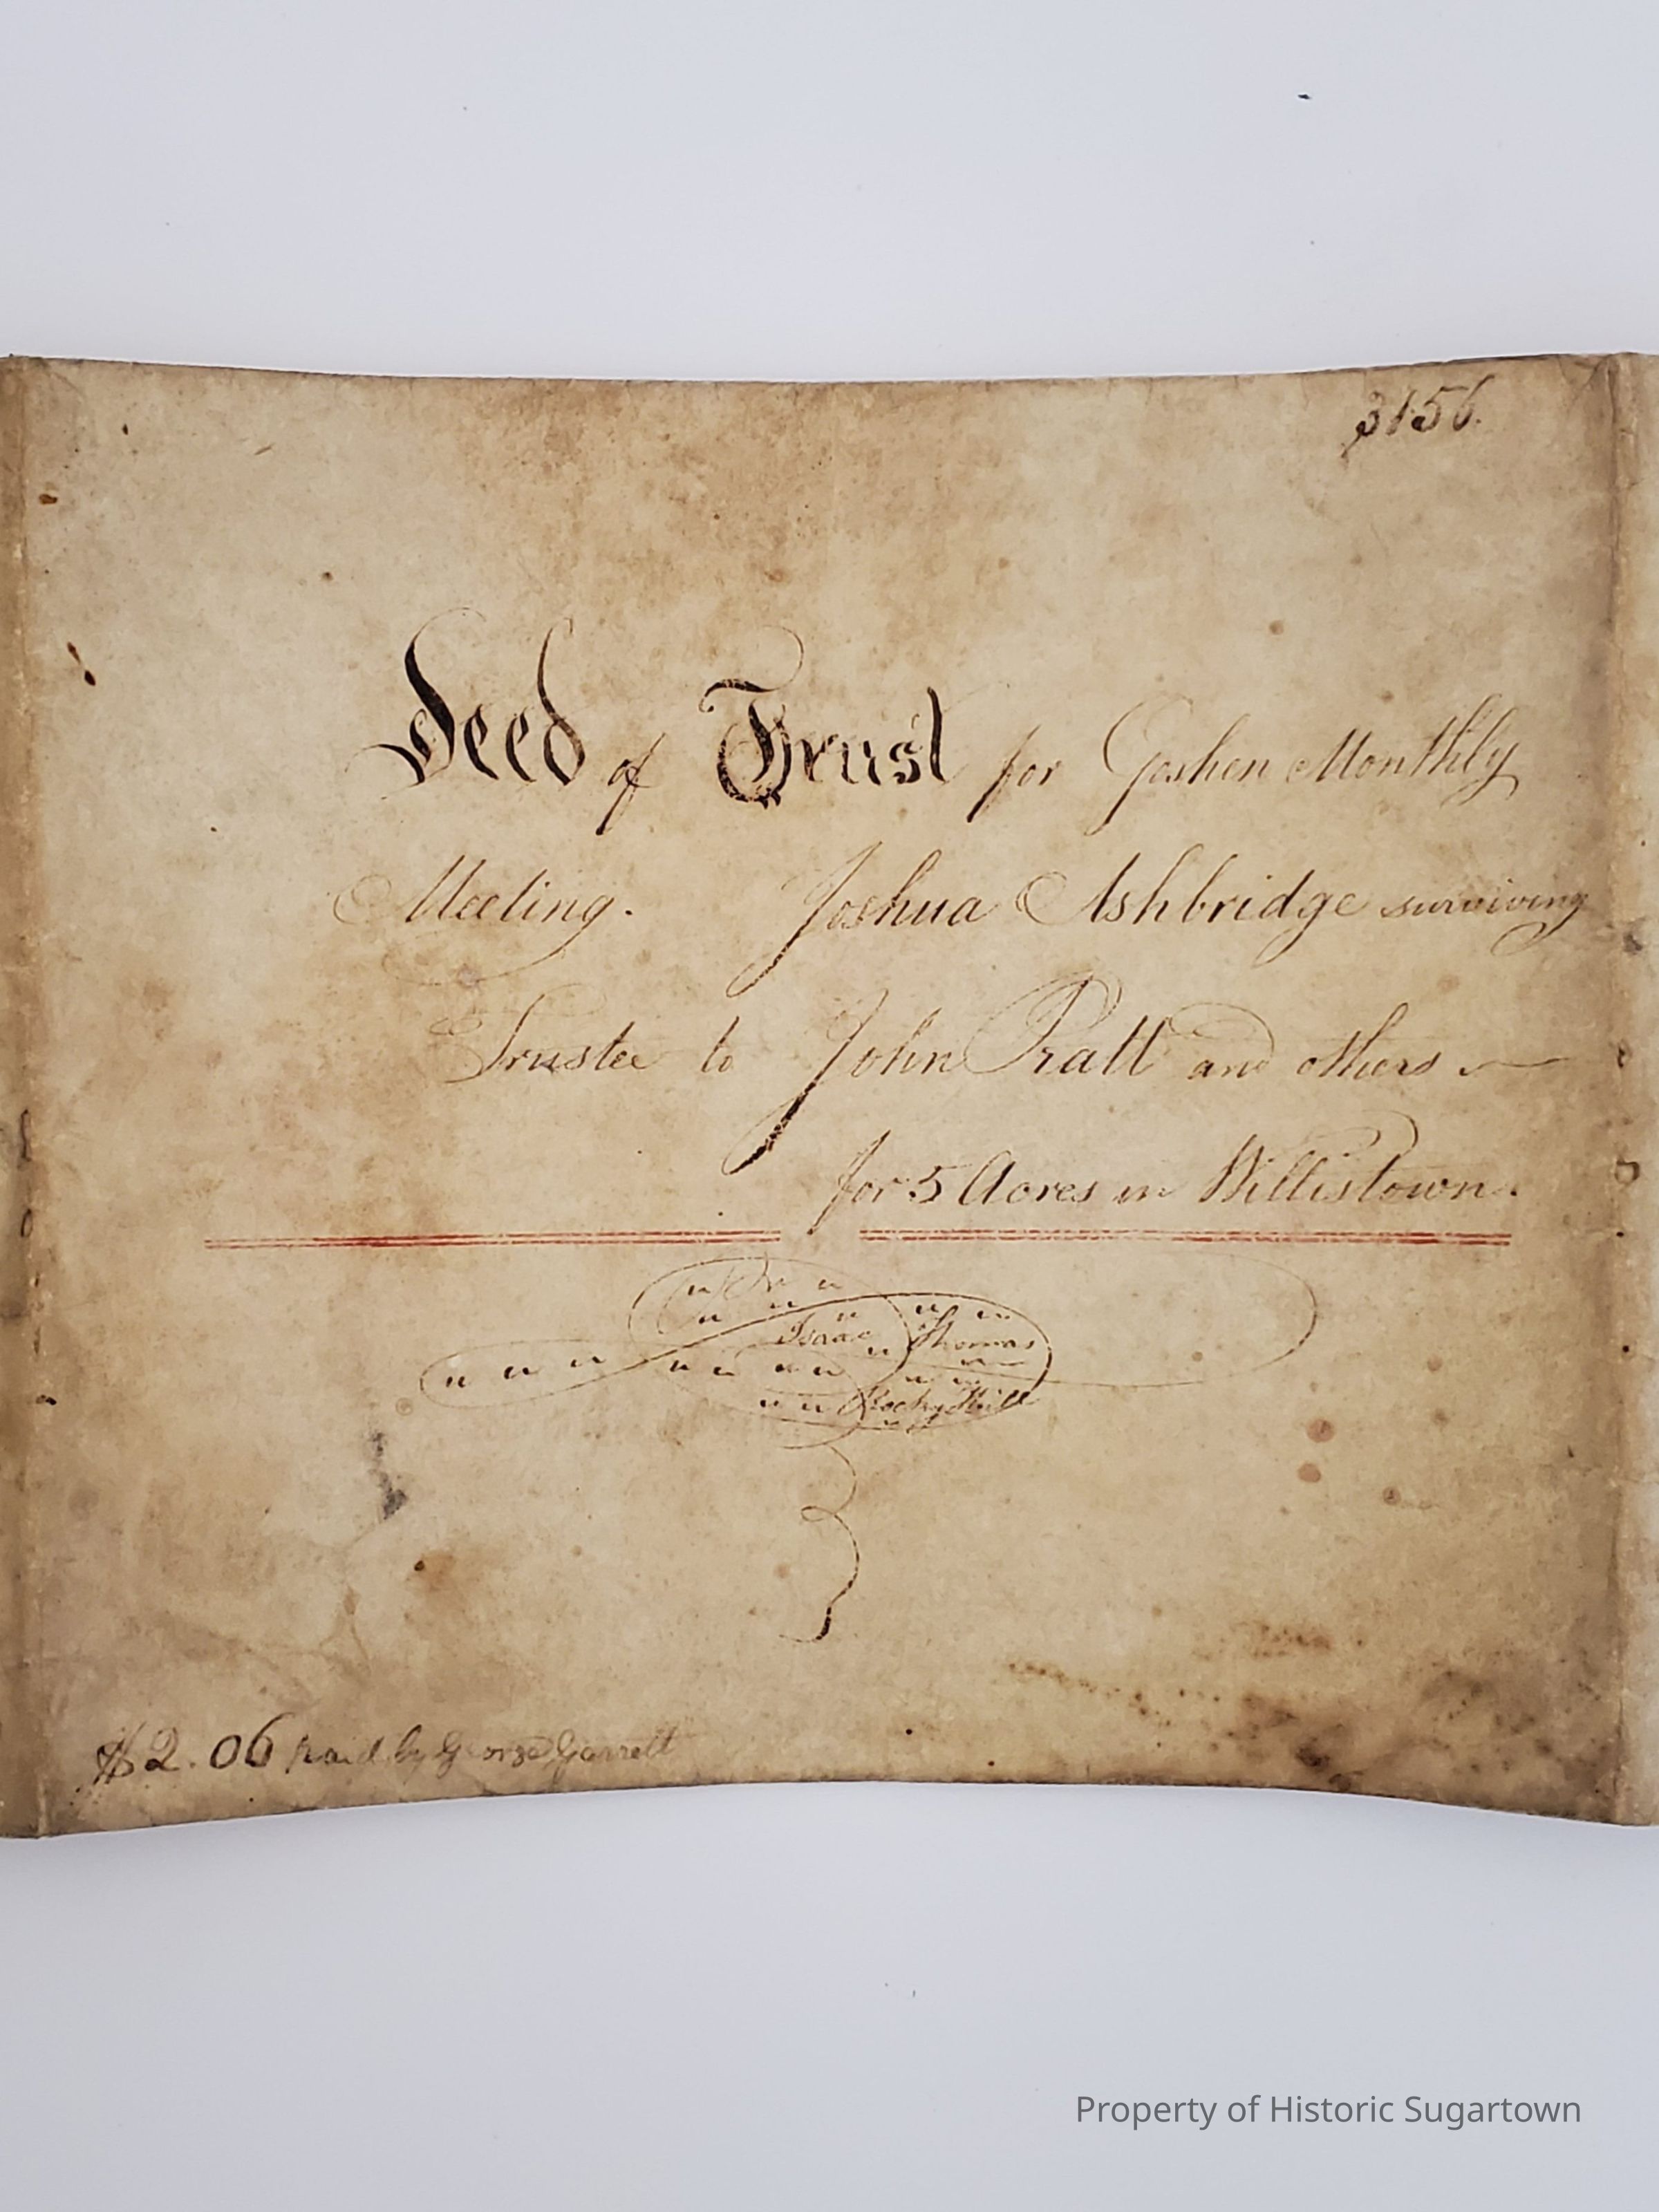 3156.
Deed of Trust for Goshen Monthly
Meeting. Joshua Ashbridge surviving
Trustee to John Pratt and others
for 5 Acres in Willistown.
Isaac Thomas
Rocky Hill
$2.06 paid by George Garrett
Property of Historic Sugartown